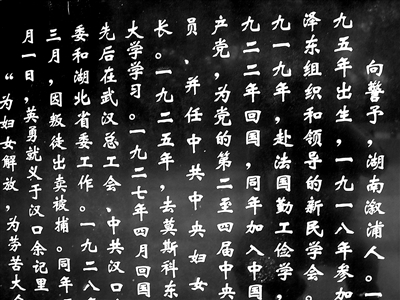 向警予，湖南溆浦人。一
九五年出生，一九一八年参加
泽东组织和领导的新民学会。
九一九年，赴法国勤工俭学，
九二二年回国，同年加入中国
产党，为党的第二至四届中央
员、并任中共中央妇女
长。一九二五年，去莫斯科东
大学学习。一九二七年四月回国
先后在武汉总工会、中共汉口
委和湖北省委工作。一九二八
三月，因叛徒出卖被捕。同年
月一日，英勇就义于汉口余记里
“为妇女解放，为劳苦大